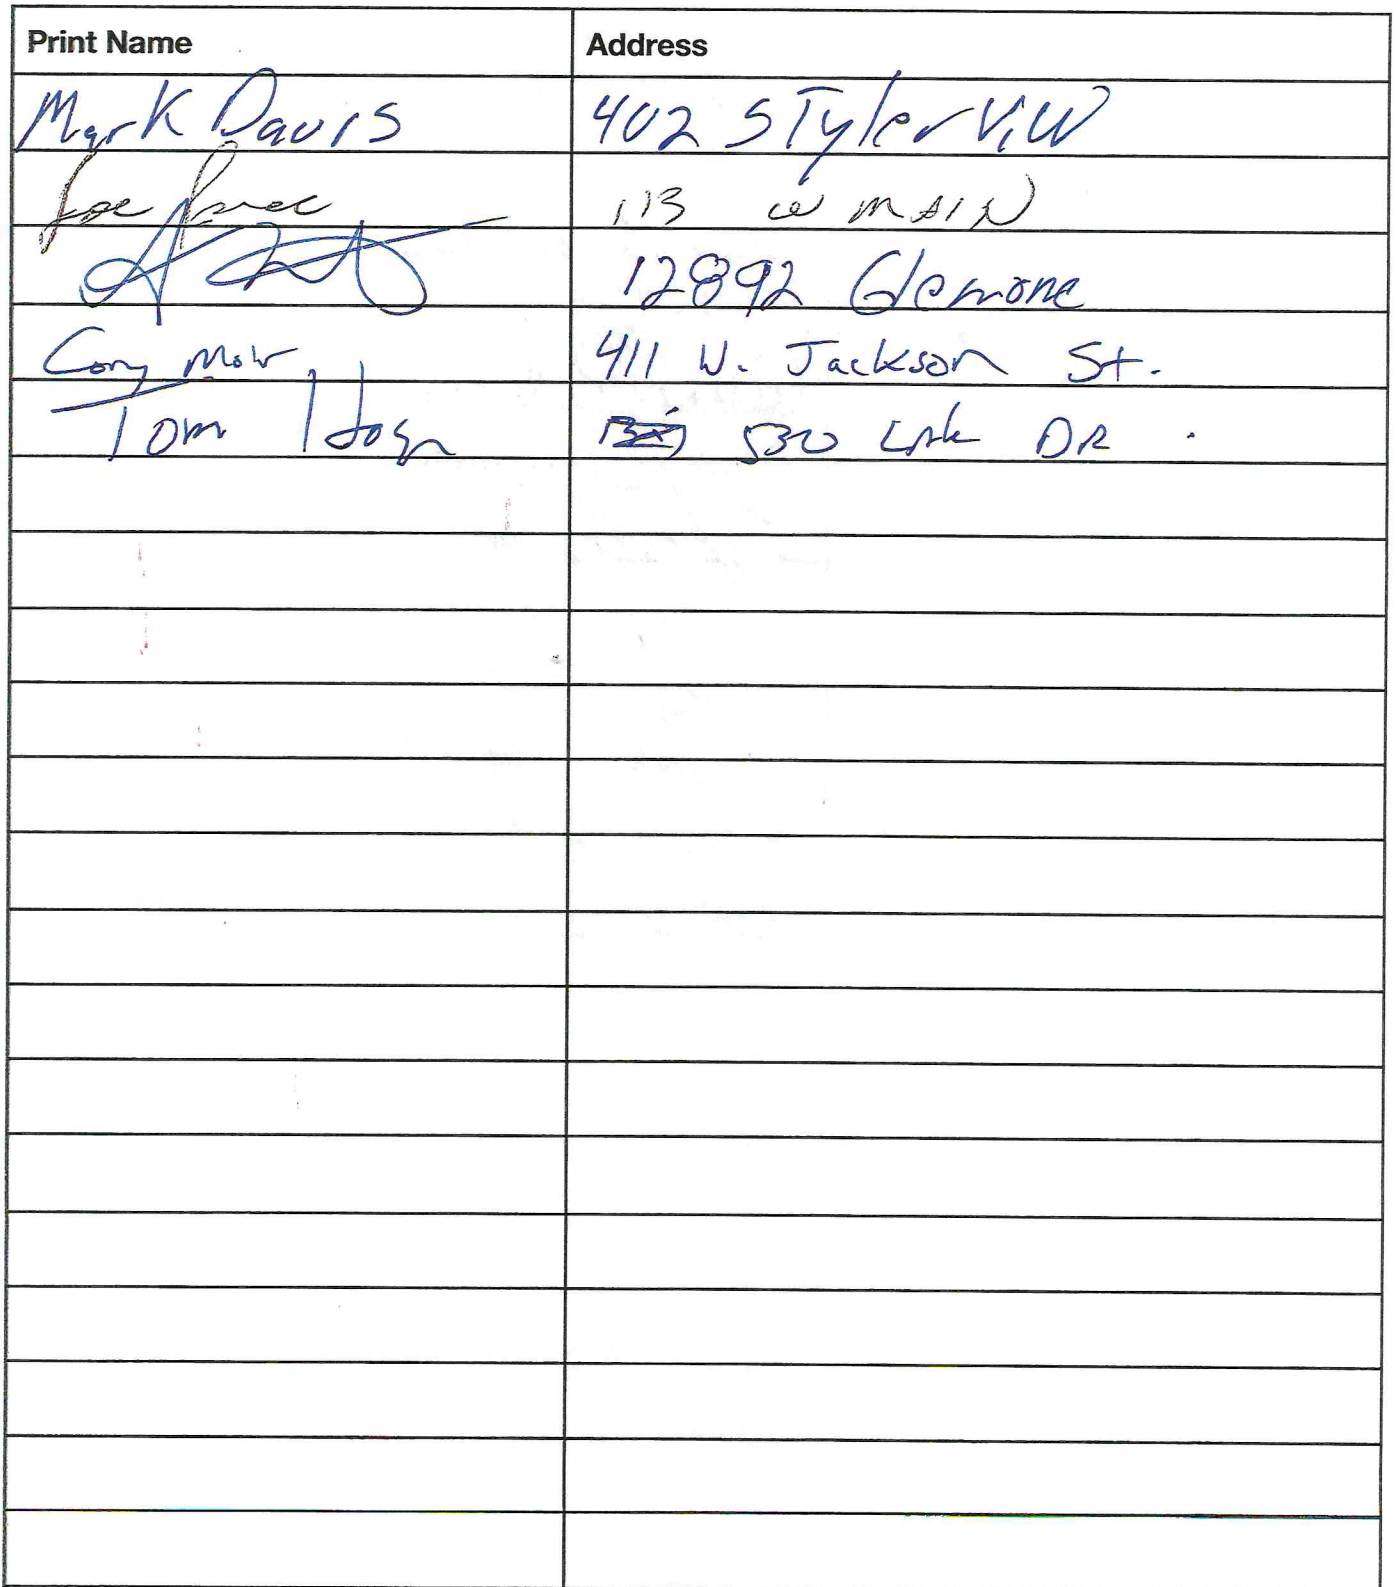 Print Name Address
Mark Davis 402 S Tyler V.W
Joe 113 W MAIN
12892
Cory 411 W. Jackson St.
Tom 530 Lake DR.